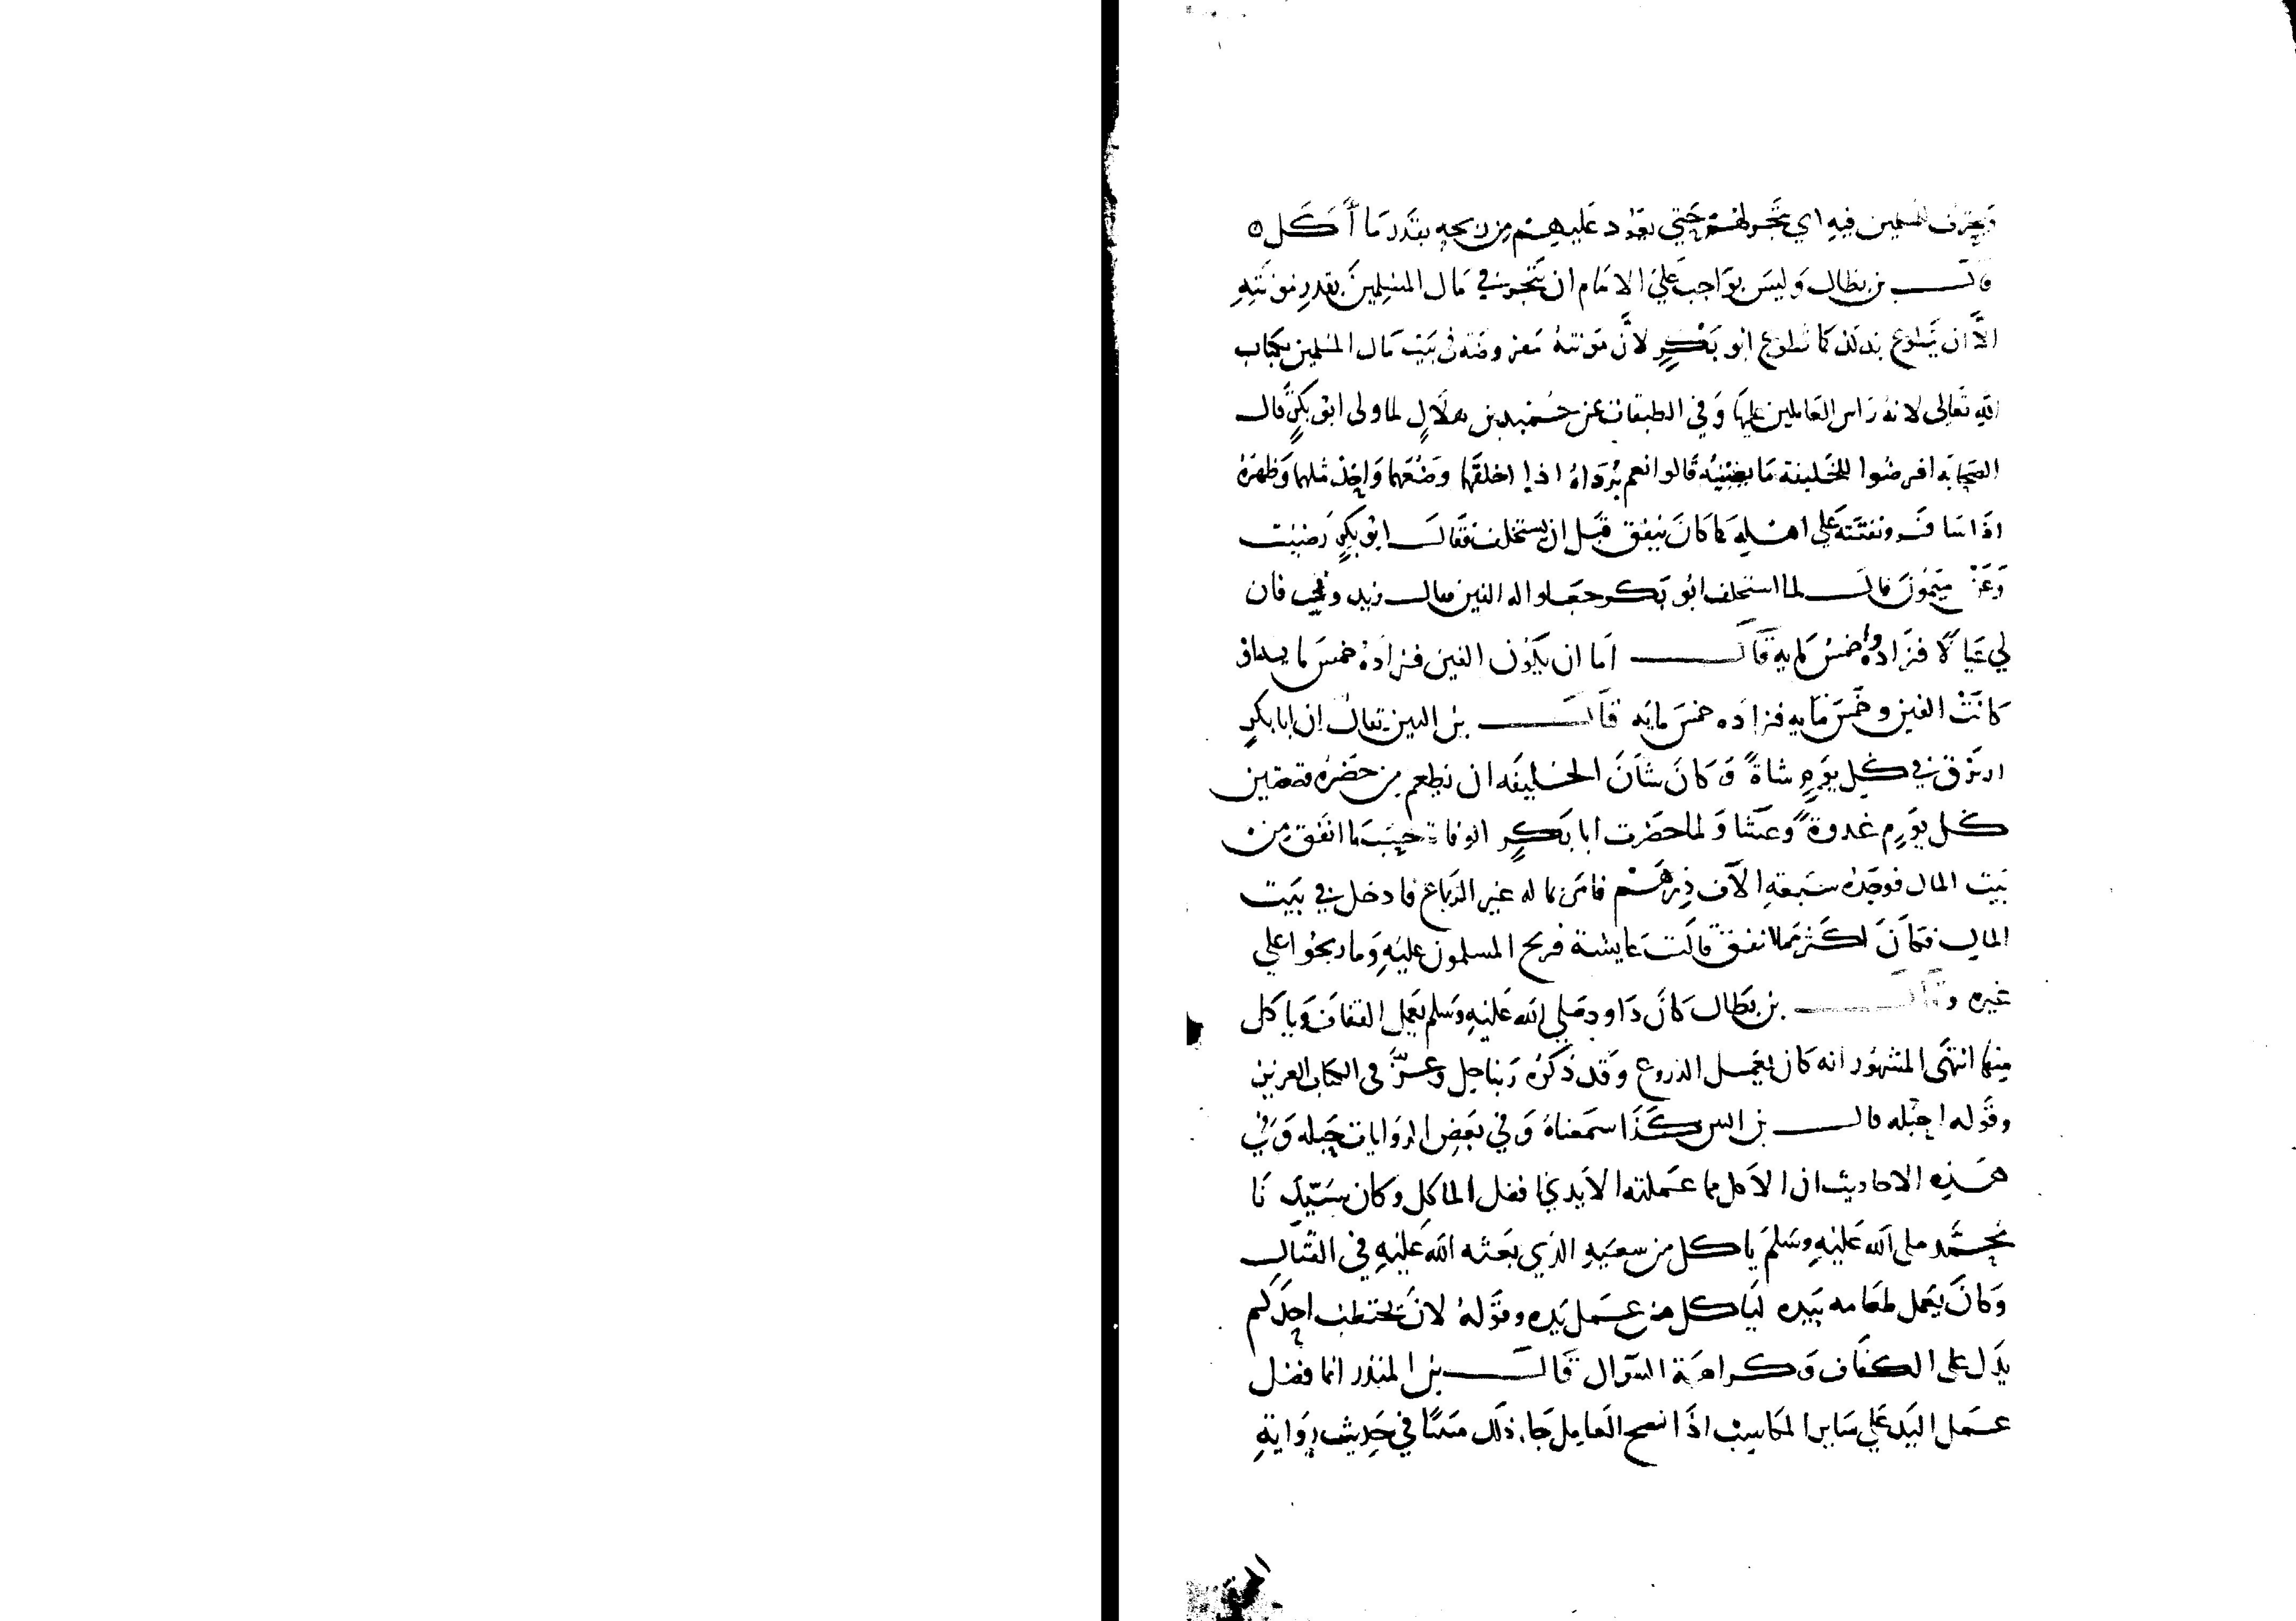 ويحترف للمسلمين فيه اي يتجر لهم حتي يعود عليهم من ربحه بقدر ما أكل ه
قال بن بطال وليس بواجب علي الامام ان يتجر في مال المسلمين بقدر مونته
الا ان يتطوع بذلك كما تطوع ابو بكر لان مونته مفروضة في بيت مال المسلمين بكتاب
الله تعالى لانه راس العاملين عليها وفي الطبقات عن حميد بن هلال لما ولى ابو بكر قال
الصحابه افرضوا للخليفة ما يغنيه قالوا نعم برداه اذا اخلقهما وضعهما واخذ مثلهما وظهره
اذا سافر ونفقته علي اهله كما كان ينفق قبل ان يستخلف فقال ابو بكر رضيت
وعن ميمون قال لما استخلف ابو بكر جعلوا له الفين فقال زيدوني فان
لي عيالا فزادوه خمس مايه قال اما ان يكون الفين فزاده خمس مايه او
كانت الفين وخمس مايه فزاده خمس مايه قال بن التين يقال ان ابا بكر
ارتزق في كل يوم شاة وكان شان الخليفه ان يطعم من حضره قصعتين
كل يوم غدوة وعشا ولما حضرت ابا بكر الوفاة حسب ما انفق من
بيت المال فوجده سبعة الاف درهم فامر بماله غير الرباع فادخل في بيت
المال فكان اكثر مما انفق قالت عايشة فربح المسلمون عليه وما ربحوا علي
غيره وقال بن بطال كان داود صلي الله عليه وسلم يعمل القفاف وياكل
منها انتهى المشهور انه كان يعمل الدروع وقد ذكره ربنا جل وعز في الكتاب العزيز
وقوله احبله قال بن التين كذا سمعناه وفي بعض الروايات حبله وفي
هذه الاحاديث ان الاكل مما عملته الايدي افضل الماكل وكان سيدنا
محمد صلى الله عليه وسلم ياكل من سعيه الذي بعثه الله عليه في القتال
وكان يعمل طعامه بيده لياكل من عمل يده وقوله لان يحتطب احدكم
يدل على الكفاف وكراهة السؤال قال بن المنذر انما فضل
عمل اليد علي ساير المكاسب اذا نصح العامل جا ذلك مبينا في حديث رواية